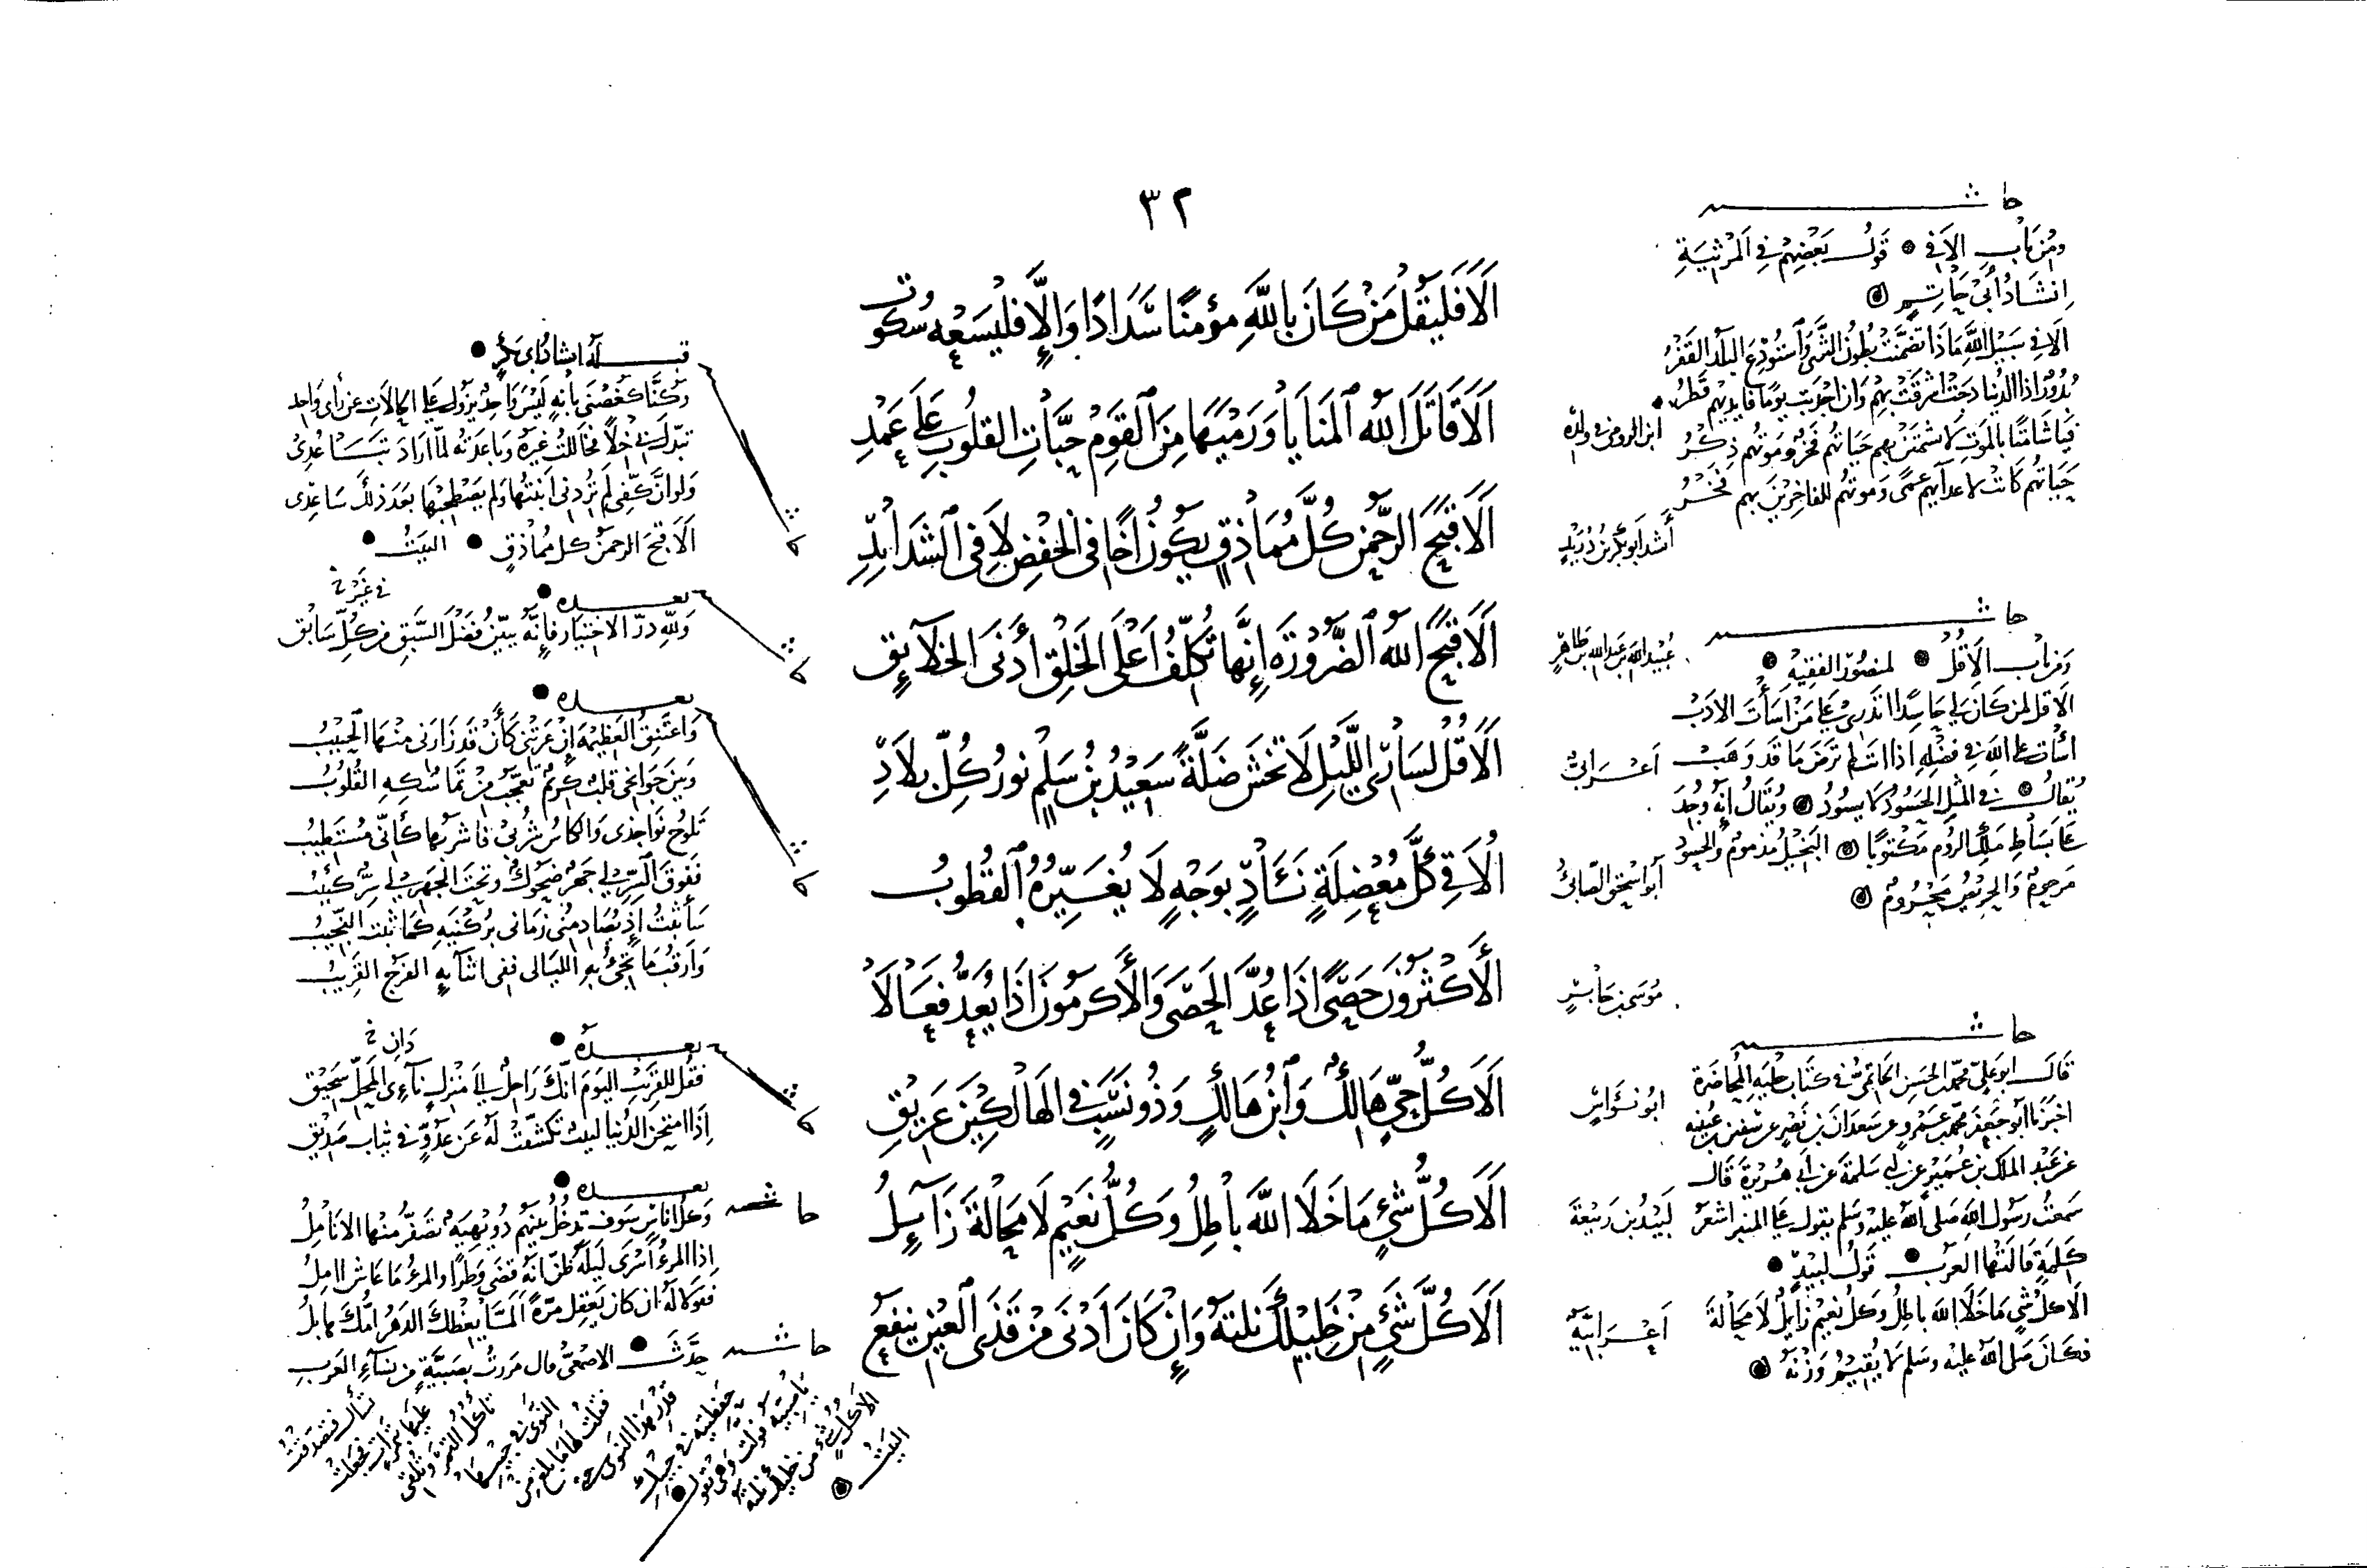 ٣٢
أَلَا فَلْيَقُلْ مَنْ كَانَ بِاللَّهِ مُؤْمِنًا سَدَادًا وَإِلَّا فَلْيَسَعْهُ سُكُوتُ
أَلَا قَاتَلَ اللَّهُ الْمَنَايَا وَرَمْيَهَا مِنَ الْقَوْمِ حَبَّاتِ الْقُلُوبِ عَلَى عَمْدِ
أَلَا قَبَّحَ الرَّحْمَنُ كُلَّ مُمَاذِقٍ يَكُونُ أَخًا فِي الْخَفْضِ لَا فِي الشَّدَائِدِ
أَلَا قَبَّحَ اللَّهُ الضَّرُورَةَ إِنَّهَا تُكَلِّفُ أَعْلَى الْخَلْقِ أَدْنَى الْخَلَائِقِ
أَلَا قُلْ لِسَارِي اللَّيْلِ لَا تَخْشَ ضَلَّةً سَعِيدُ بْنُ سَلْمٍ نُورُ كُلِّ بِلَادِ
أُلَاقِي كُلَّ مُعْضِلَةٍ نَئَادٍ بِوَجْهٍ لَا يُغَيِّرُهُ الْقُطُوبُ
الْأَكْثَرُونَ حَصًى إِذَا عُدَّ الْحَصَى وَالْأَكْرَمُونَ إِذَا يُعَدُّ فَعَالَا
أَلَا كُلُّ حَيٍّ هَالِكٌ وَابْنُ هَالِكٍ وَذُو نَسَبٍ فِي الْهَالِكِينَ عَرِيقِ
أَلَا كُلُّ شَيْءٍ مَا خَلَا اللَّهَ بَاطِلُ وَكُلُّ نَعِيمٍ لَا مَحَالَةَ زَائِلُ
أَلَا كُلُّ شَيْءٍ مِنْ خَلِيلِكَ نِلْتَهُ وَإِنْ كَانَ أَدْنَى مِنْ قَذَى الْعَيْنِ يَنْفَعُ
حاشية
ومن باب ألا في قول بعضهم في المرثية
إنشاد أبي حاتم
ألا في سبيل الله ماذا تضمنت بطون الثرى واستودع البلد القفر
بدور إذا الدنيا دجت أشرقت بهم وإن أجدبت يوما فأيديهم قطر
فيا شامتا بالموت لا تشمتن بهم حياتهم فخر وموتهم ذكر
حياتهم كانت لأعدائهم عمى وموتهم للفاخرين بهم فخر
ابن الرومي في ولده
أنشد أبو بكر بن دريد
عبيد الله بن عبد الله بن طاهر
أعرابي
أبو إسحق الصابئ
موسى بن جابر
أبو نواس
لبيد بن ربيعة
أعرابية
حاشية
ومن باب ألا قل لمنصور الفقيه
ألا قل لمن كان لي حاسدا أتدري على من أسأت الأدب
أسأت على الله في فضله إذا أنت لم ترض ما قد وهب
يقال في المثل الحسود لا يسود ويقال إنه وجد
على بساط ملك الروم مكتوبا البخيل مذموم والحسود
مرحوم والحريص محروم
حاشية
قال أبو علي محمد بن الحسن الحاتمي في كتاب حلية المحاضرة
أخبرنا أبو جعفر محمد بن عمرو عن سعدان بن نصر عن سفين بن عيينة
عن عبد الملك بن عمير عن أبي سلمة عن أبي هريرة قال
سمعت رسول الله صلى الله عليه وسلم يقول على المنبر أشعر
كلمة قالتها العرب قول لبيد
ألا كل شيء ما خلا الله باطل وكل نعيم زايل لا محالة
فكان صلى الله عليه وسلم لا يقيم وزنه
قبله إنشاد ابن دريد
وكنا كغصني بانة ليس واحد يزول على الحالات عن رأي واحد
تبدل بي خلا فخاللت غيره وباعدته لما أراد تباعدي
ولو أن كفي لم تردني أبنتها ولم يصطحبها بعد ذلك ساعدي
ألا قبح الرحمن كل مماذق البيت
بعده
ولله در الاختيار فإنه يبين فضل السبق من كل سابق
بعده
وأعتنق العظيمة إن عرتني كأن قد زارني منها الحبيب
وبين جوانحي قلب كريم تعجب من تماسكه القلوب
تلوح نواجذي والكاس شربي فأشربها كأني مستطيب
ففوق السر لي جهر ضحوك وتحت الجهر لي سر كئيب
سأثبت إذ يصادمني زماني بركنيه كما ثبت النجيب
وأرقب ما تجيء به الليالي ففي أثنائه الفرج القريب
بعده
فقل للغريب اليوم إنك راحل إلى منزل نائي المحل سحيق
إذا امتحن الدنيا لبيب تكشفت له عن عدو في ثياب صديق
بعده
وكل أناس سوف تدخل بينهم دويهية تصفر منها الأنامل
إذا المرء أسرى ليلة ظن أنه قضى وطرا والمرء ما عاش آمل
فقولا له إن كان يعقل مرة ألما يعظك الدهر أمك هابل
حاشية حدث الأصمعي قال مررت بصبية من نساء العرب
تسأل فتصدقت
عليها بتمرات فجعلت
تأكل التمر وتلقي
النوى في جيبها
فقلت لها ما بلغ من
قدر هذا النوى
جعلته في جيبك
فولت وهي تقول
ألا كل شيء من خليلك نلته
البيت